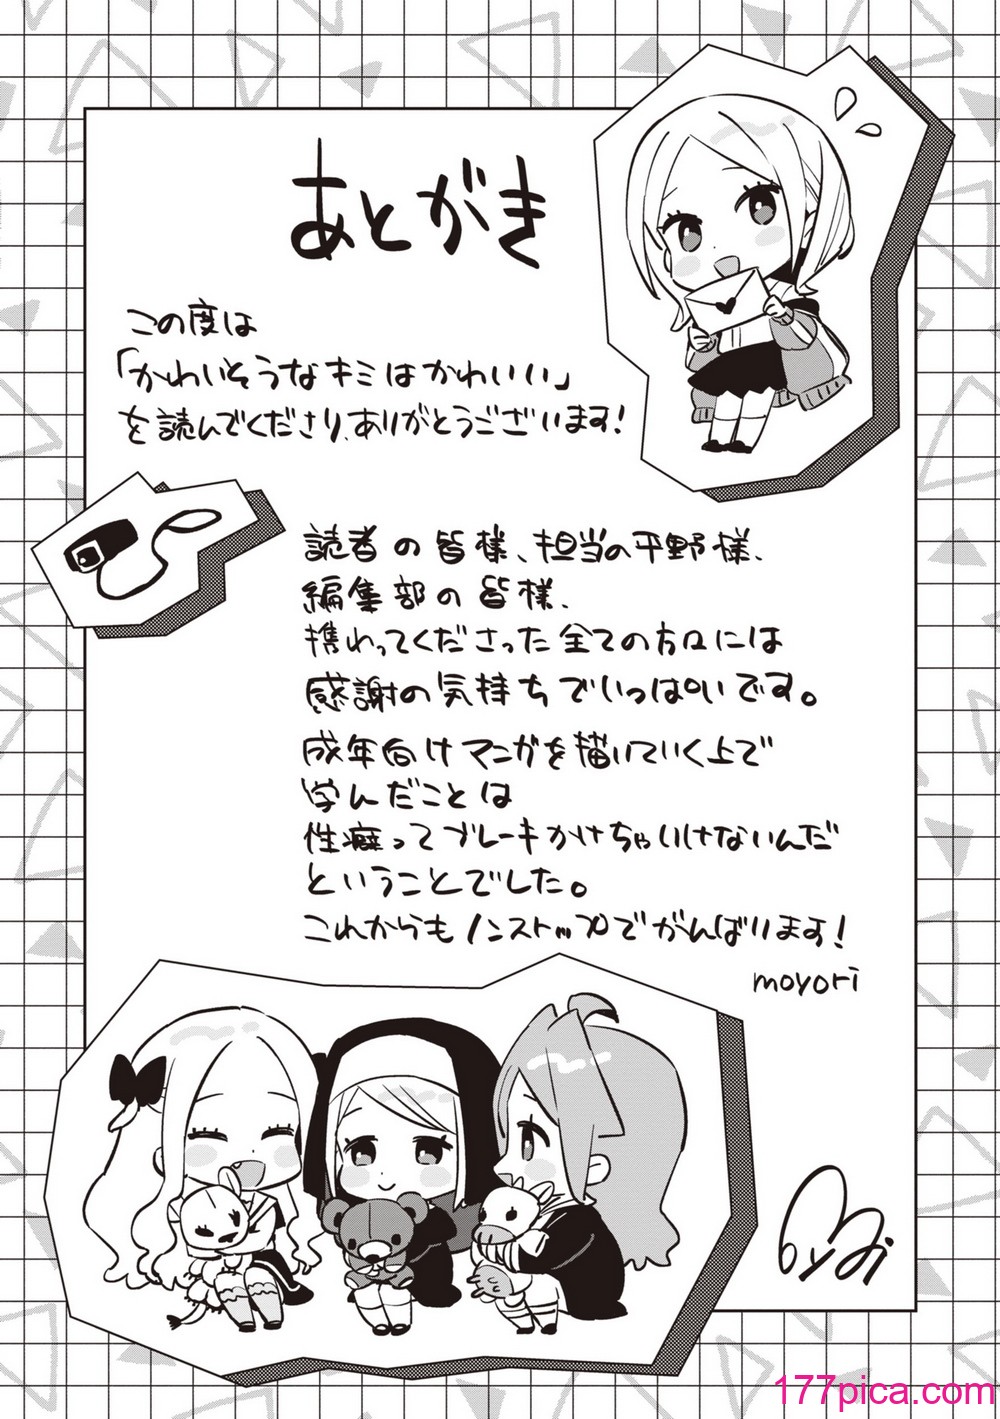 あとがき
この度は
「かわいそうなキミはかわいい」
を読んでくださり、ありがとうございます!
読者の皆様、担当の平野様、
編集部の皆様、
携わってくださった全ての方々には
感謝の気持ちでいっぱいです。
成年向けマンガを描いていく上で
学んだことは
性癖ってブレーキかけちゃいけないんだ
ということでした。
これからもノンストップでがんばります!
moyori
177pica.com